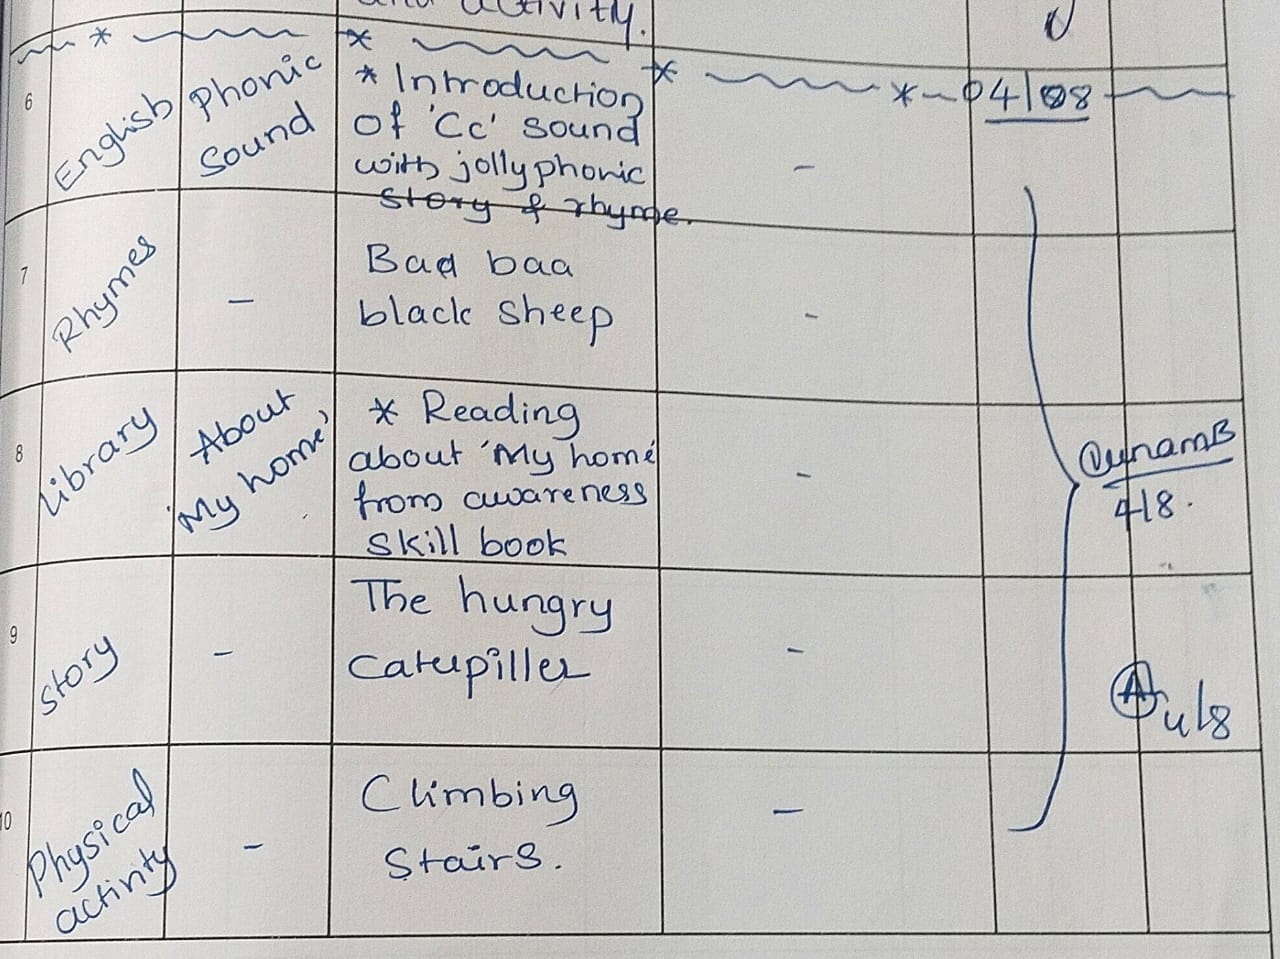 and activity.
* * * * 04/08
6 English Phonic Sound * Introduction of 'Cc' sound with jolly phonic story & rhyme. -
7 Rhymes - Baa baa black sheep -
8 Library About 'My home' * Reading about 'My home' from awareness skill book -
9 Story - The hungry caterpiller -
10 Physical activity - Climbing Stairs. -
4/8.
4/8